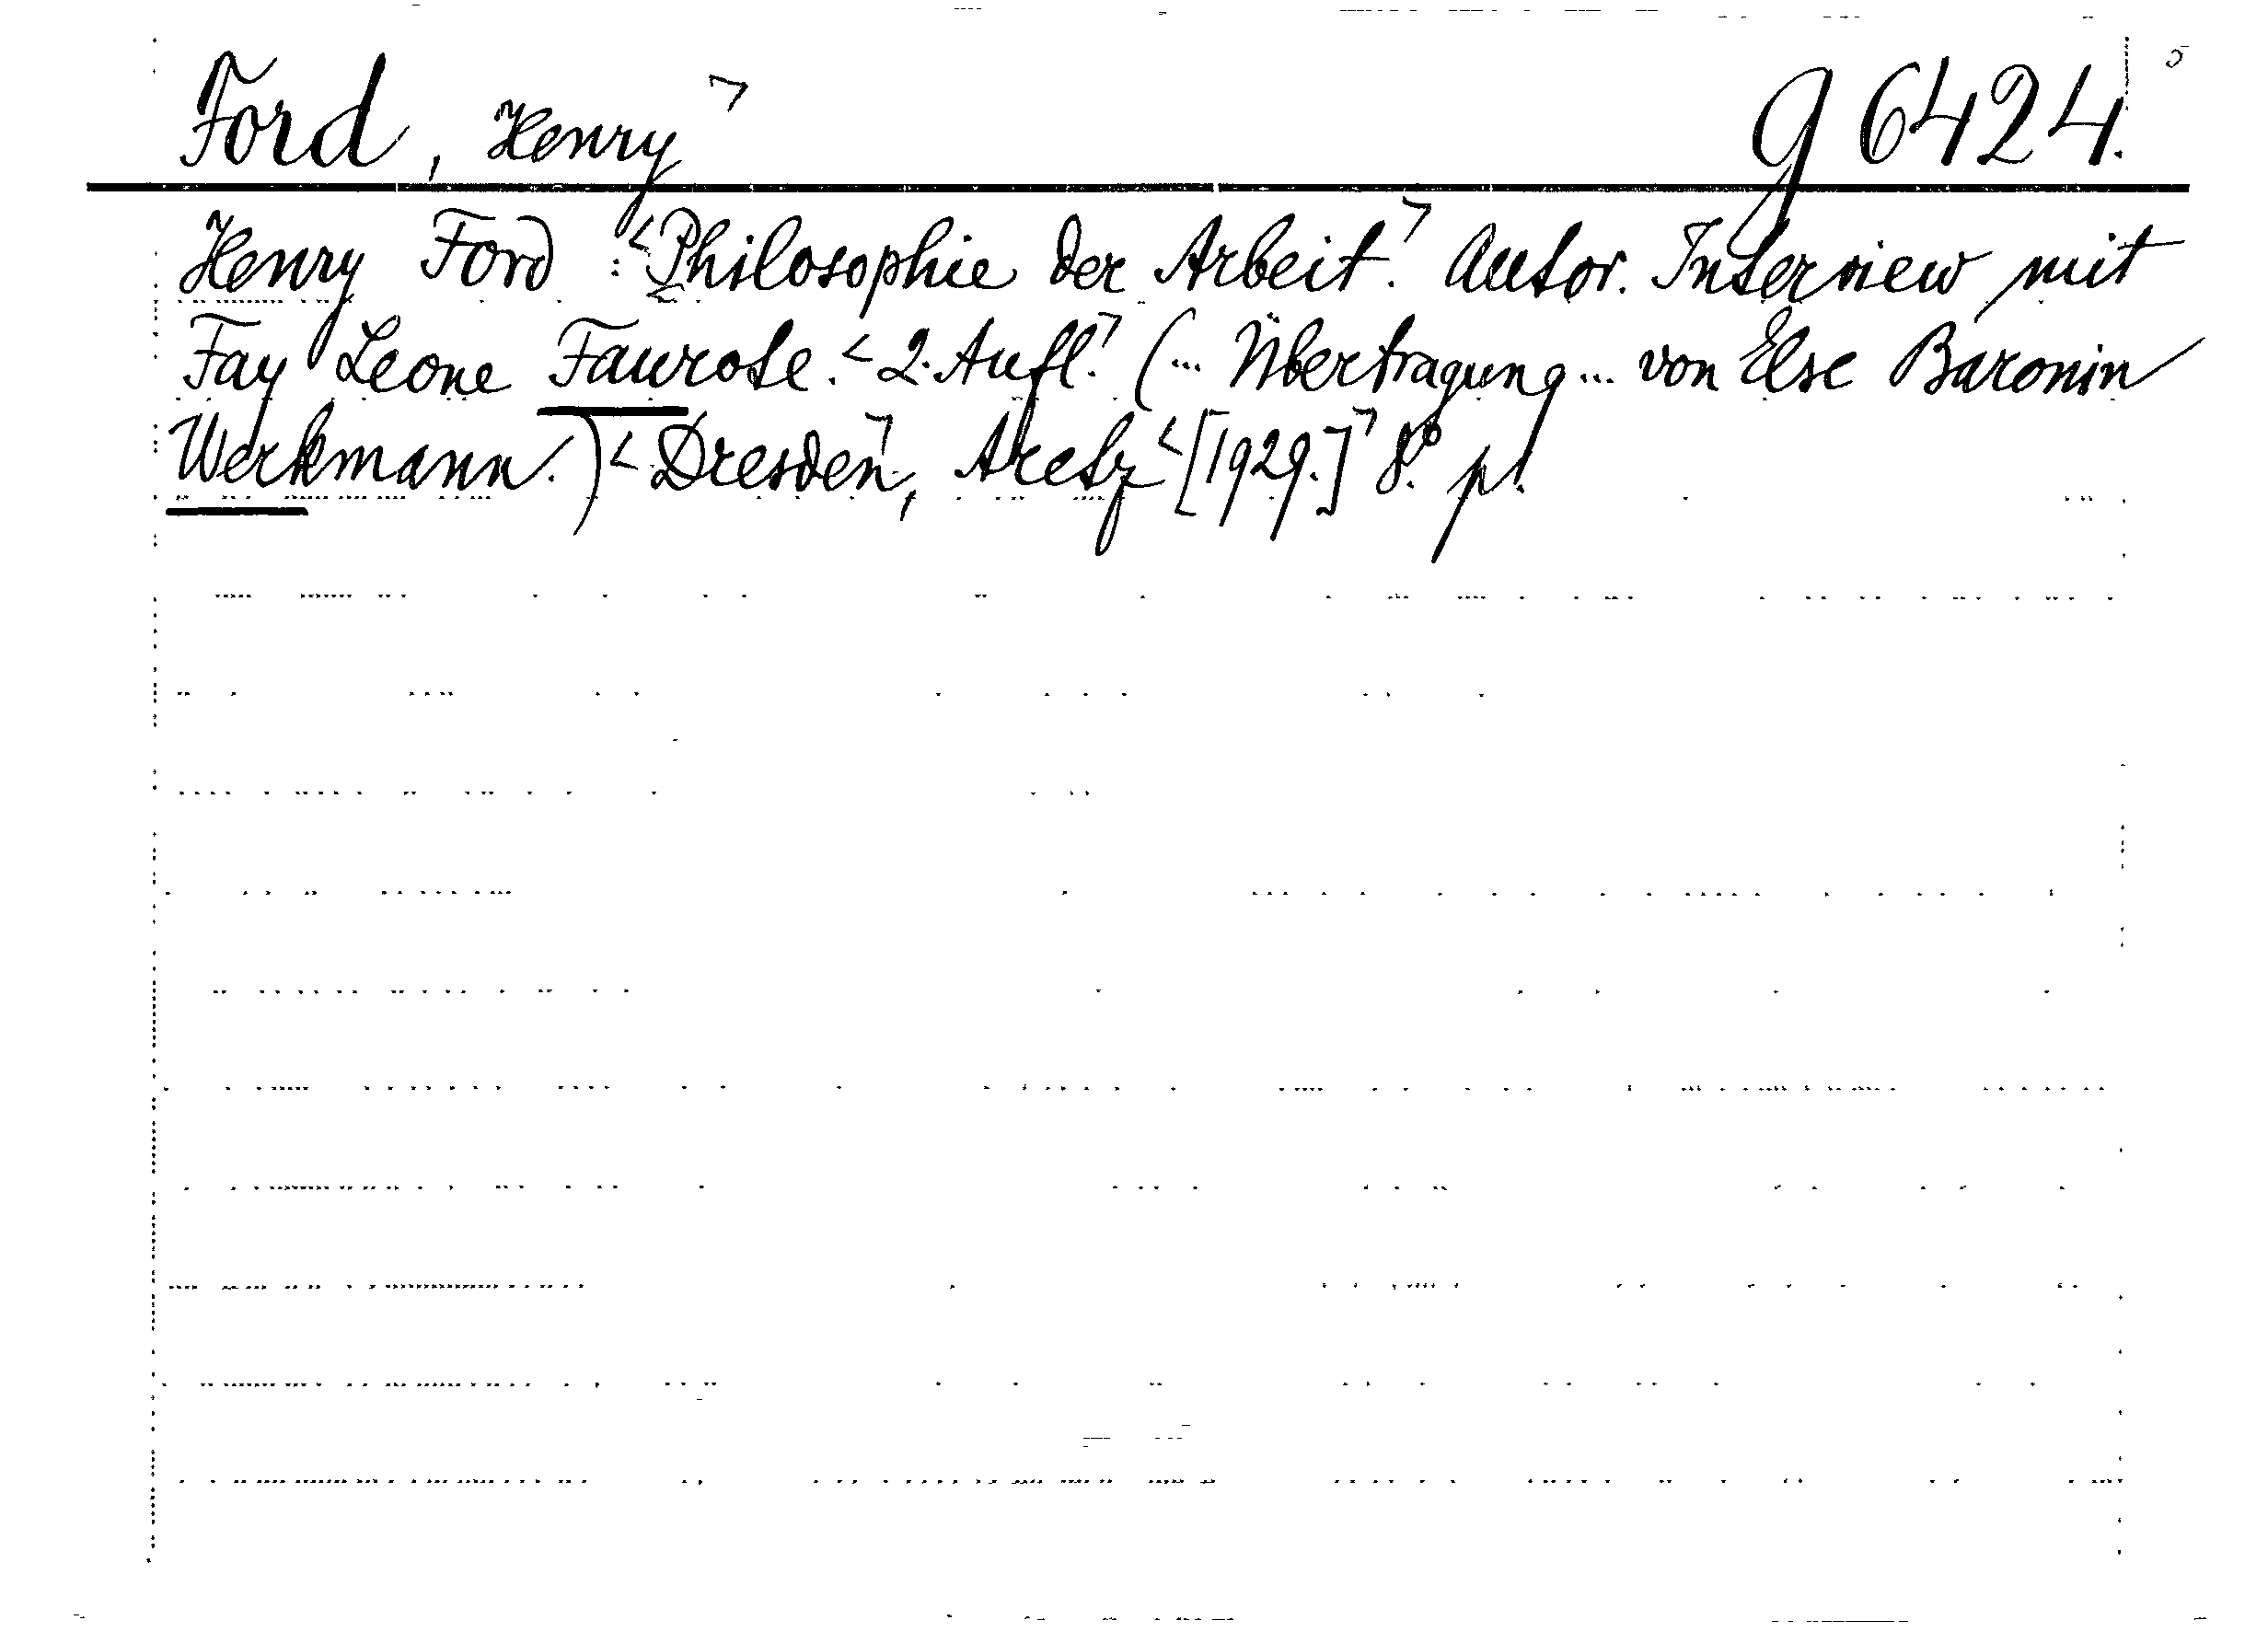 Ford, Henry⌝ g 6424. 5
Henry Ford: <Philosophie der Arbeit.⌝ Autor. Interview mit
Fay Leone Faurote. <2. Aufl.⌝ (... Übertragung ... von Else Baronin
Werkmann.) <Dresden⌝, Aretz <[1929.]⌝ 8° pl.